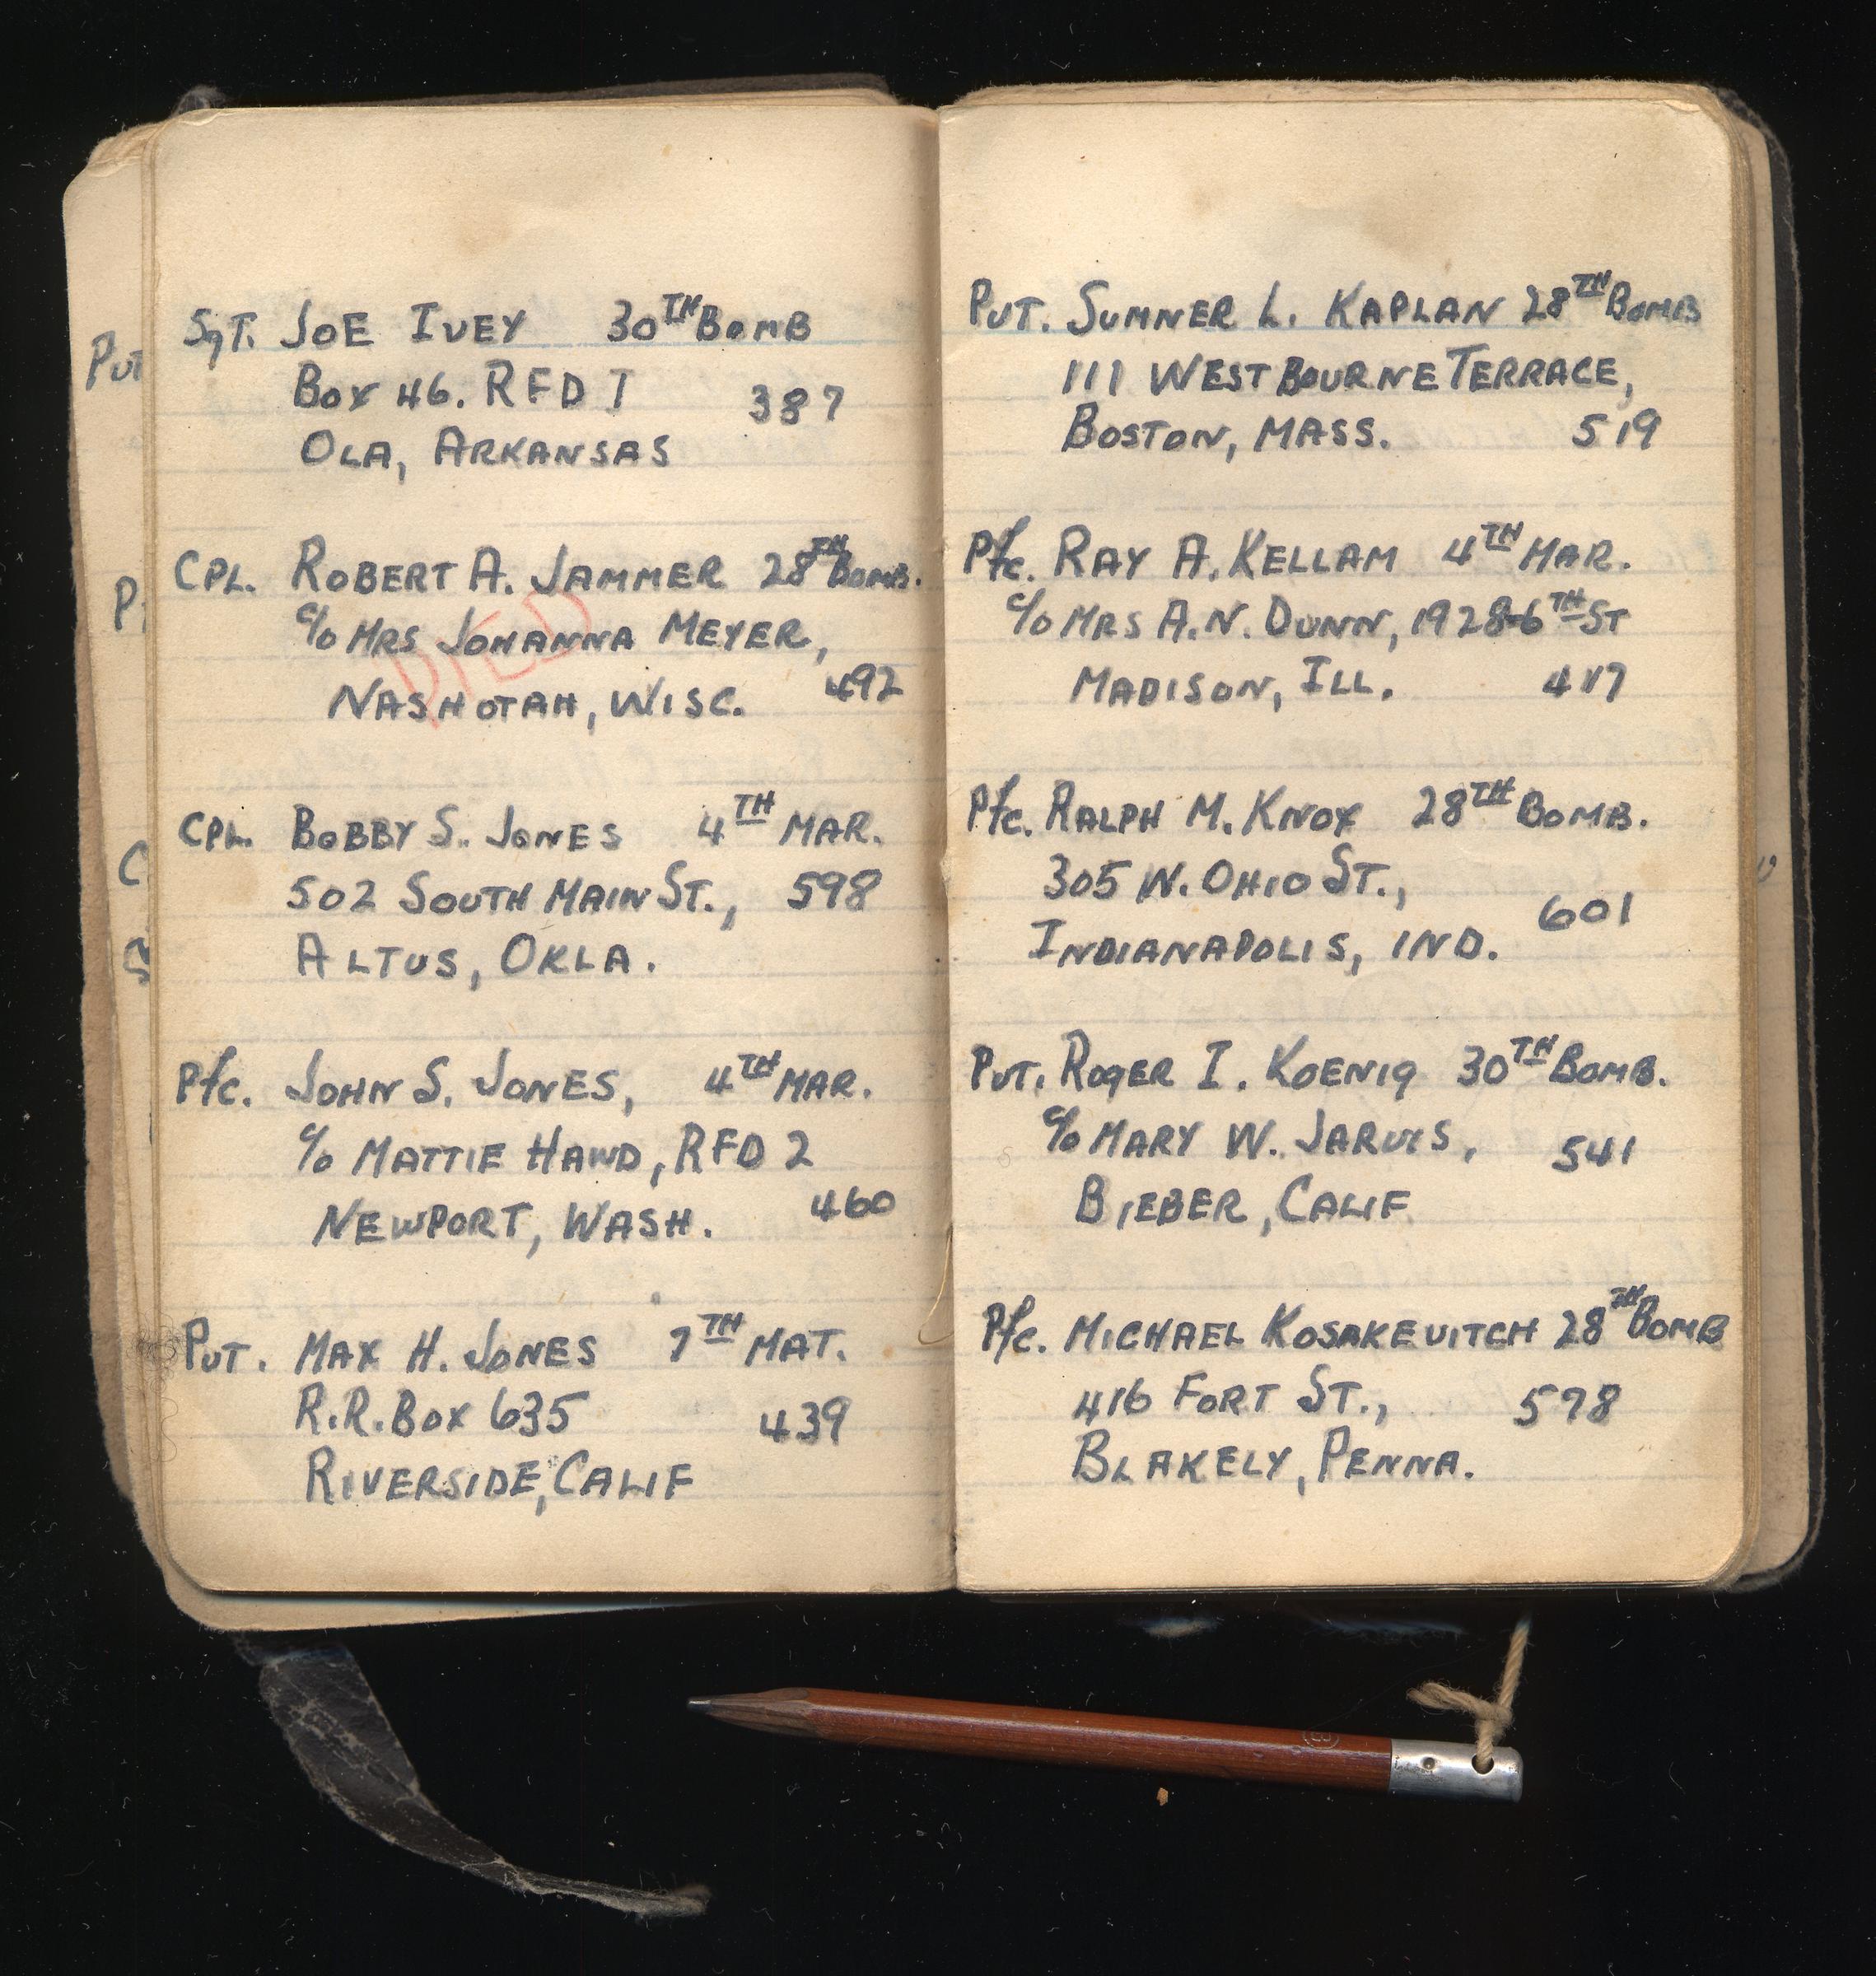 Sgt. Joe Ivey 30TH Bomb
Box 46. RFD 1 387
Ola, Arkansas
Cpl. Robert A. Jammer 28TH Bomb.
c/o Mrs Johanna Meyer,
DIED
Nashotah, Wisc. 492
Cpl. Bobby S. Jones 4TH Mar.
502 South Main St., 598
Altus, Okla.
Pfc. John S. Jones, 4TH Mar.
c/o Mattie Hawd, RFD 2
Newport, Wash. 460
Pvt. Max H. Jones 7TH Mat.
R.R. Box 635 439
Riverside, Calif
Pvt. Sumner L. Kaplan 28TH Bomb
111 Westbourne Terrace,
Boston, Mass. 519
Pfc. Ray A. Kellam 4TH Mar.
c/o Mrs A.N. Dunn, 1928-6TH St
Madison, Ill. 417
Pfc. Ralph M. Knox 28TH Bomb.
305 W. Ohio St.,
601
Indianapolis, Ind.
Pvt. Roger I. Koenig 30TH Bomb.
c/o Mary W. Jarvis, 541
Bieber, Calif
Pfc. Michael Kosakevitch 28TH Bomb
416 Fort St., 578
Blakely, Penna.